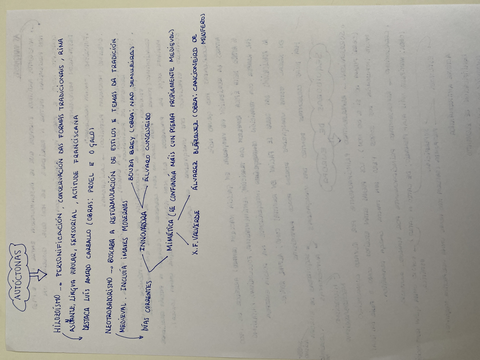 AUTÓCTONAS
HILOZOÍSMO → PERSONIFICACIÓN, CONSERVACIÓN DAS FORMAS TRADICIONAIS, RIMA
ASOANTE, LINGUA POPULAR, SENSORIAL, ACTITUDE FRANCISCANA
DESTACA LUIS AMADO CARBALLO (OBRAS: PROEL E O GALO)
NEOTROBADORISMO → BUSCABA A REFORMULACIÓN DE ESTILOS E TEMAS DA TRADICIÓN
MEDIEVAL. INCLUÍA IMAXES MODERNAS
DÚAS CORRENTES
INNOVADORA
BOUZA BREY (OBRA: NAO SENLLEIRA)
ÁLVARO CUNQUEIRO
MIMÉTICA (SE CONFUNDÍA MÁIS CUN POEMA PROPIAMENTE MEDIEVAL)
X.F. VALVERDE
ÁLVAREZ BLÁZQUEZ (OBRA: CANCIONEIRO DE
MONFERO)